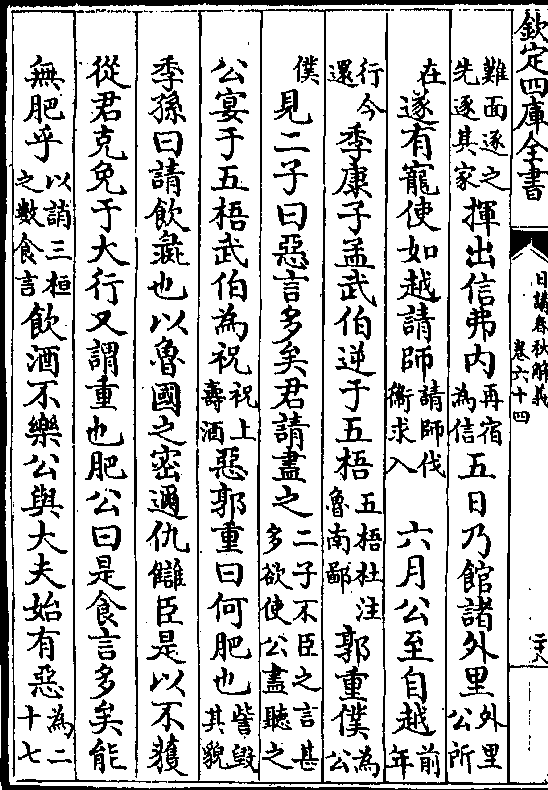 欽定四庫全書
日講春秋解義
卷六十四
難面逐之先逐其家揮出信弗内再宿為信五日乃館諸外里外里公所
在遂有寵使如越請師請師伐衛求入 六月公至自越前年
行今還季康子孟武伯逆于五梧五梧杜注魯南鄙郭重僕為公
僕見二子曰惡言多矣君請盡之二子不臣之言甚多欲使公盡聽之
公宴于五梧武伯為祝祝上壽酒惡郭重曰何肥也訾毀其貌
季孫曰請飲彘也以魯國之密邇仇讎臣是以不獲
從君克免于大行又謂重也肥公曰是食言多矣能
無肥乎以誚三桓之數食言飲酒不樂公與大夫始有惡為二十七